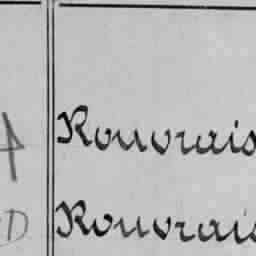 Rouvrais
D Rouvrais